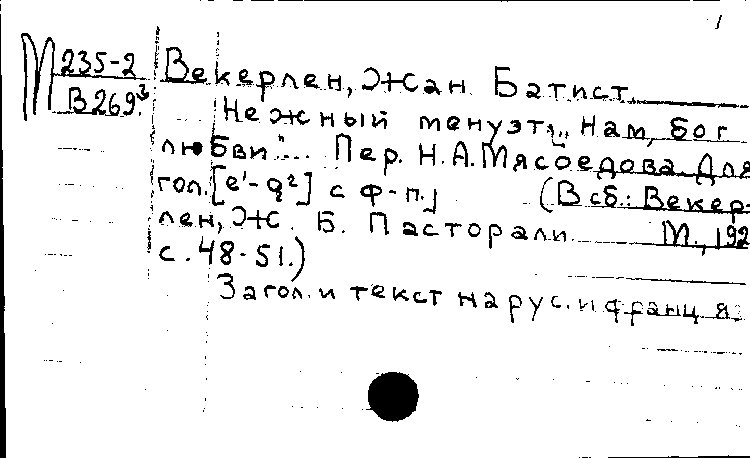 1
М 235-2 Векерлен, Жан Батист.
В269³. Нежный менуэт. „Нам, бог
любви"... Пер. Н.А.Мясоедова. Для
гол. [e'-g²] с ф-п.] (В сб.: Векер-
лен, Ж. Б. Пасторали. М., 192
с. 48-51.)
Загол. и текст на рус. и франц. я.